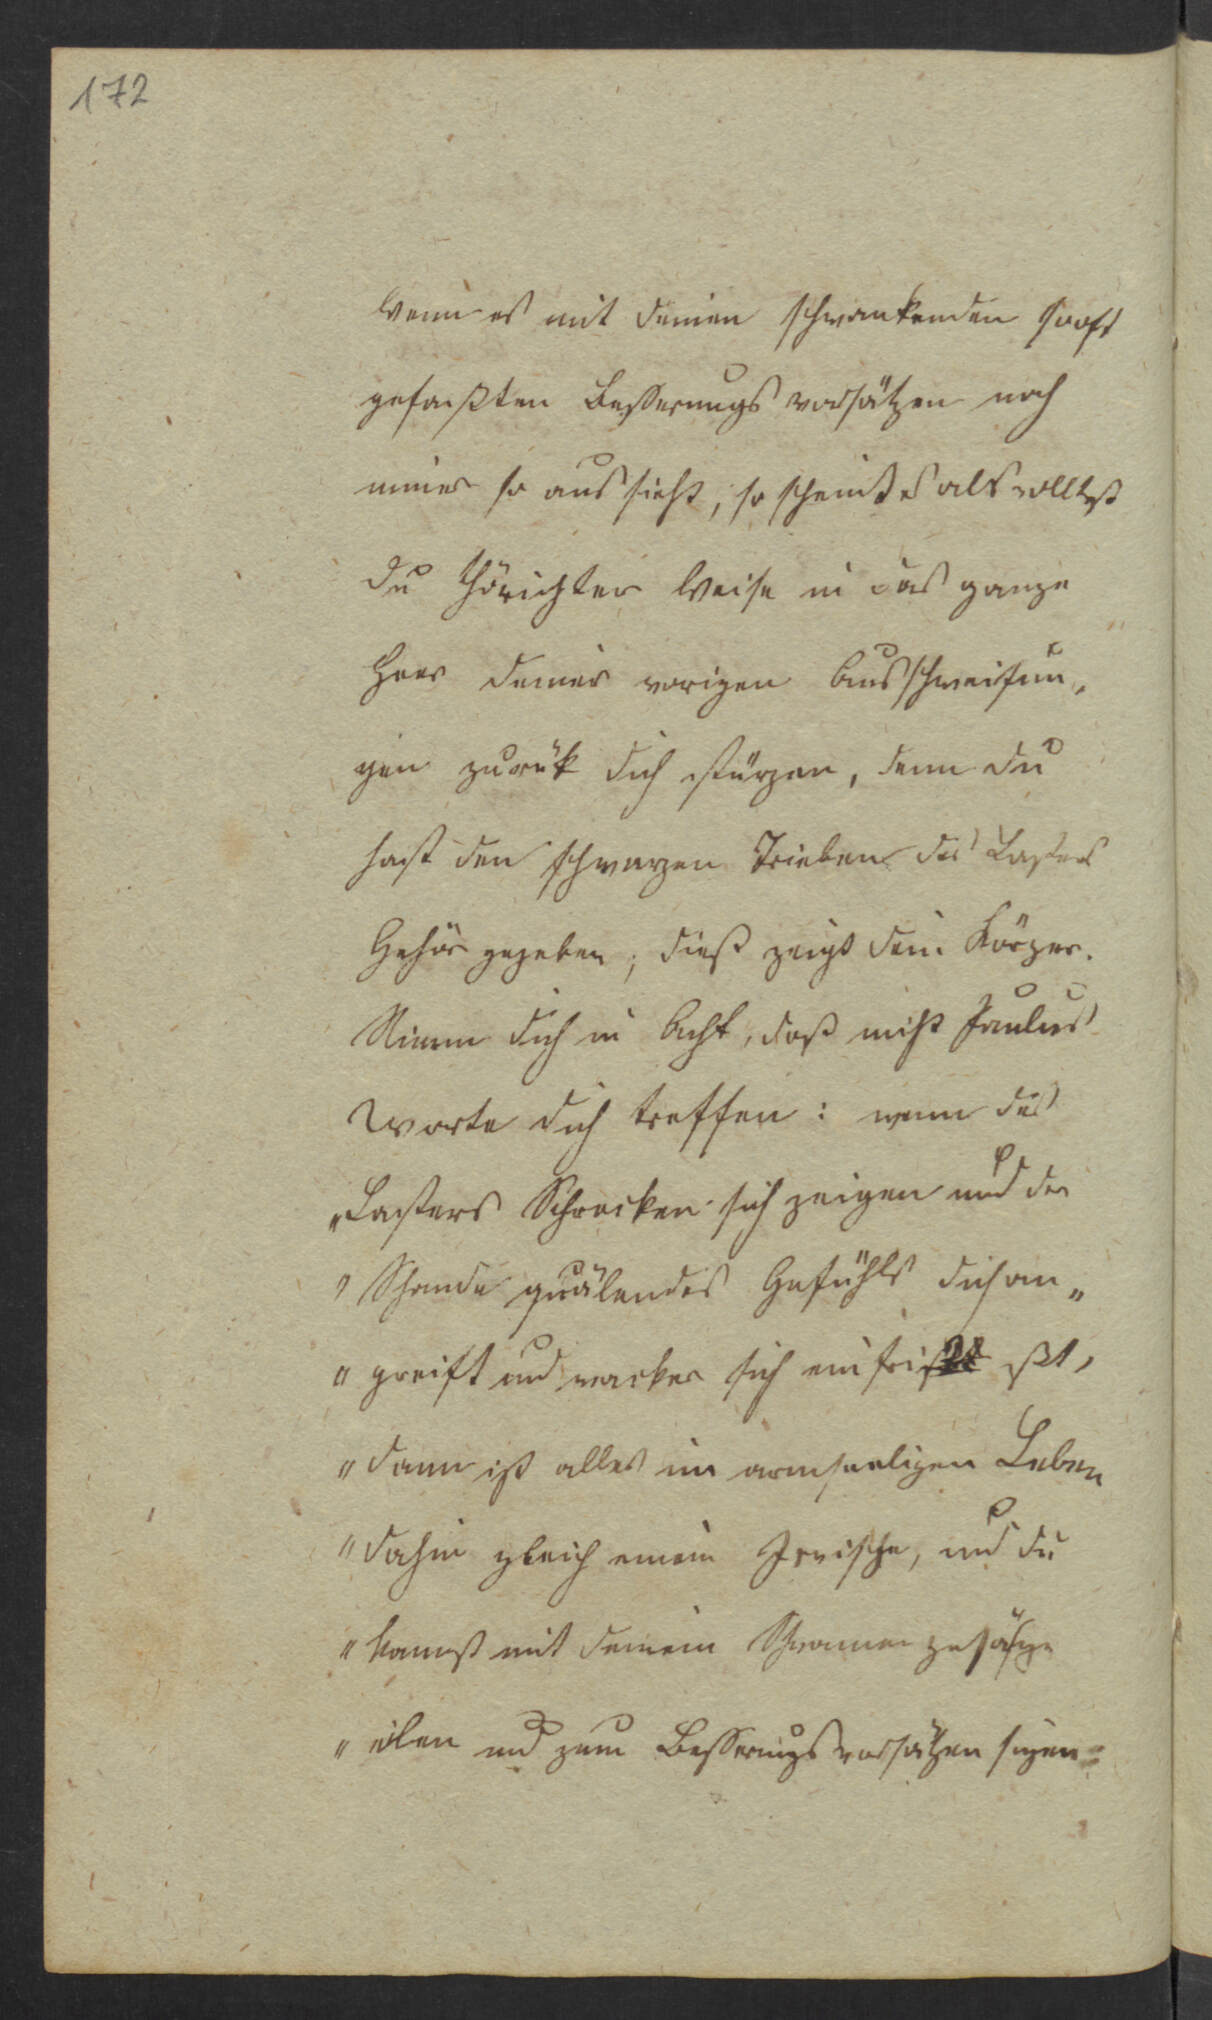 172
Wenn es mit deinen schwankenden so oft
gefaßten Besserungsvorsätzen noch
immer so aussieht, so scheint es als wolltest
du thörichter Weise in das ganze
Heer deiner vorigen Ausschweifun,
gen zurük dich stürzen, denn du
hast den schwarzen Trieben des Lasters
Gehör gegeben; dieß zeigt dein Körper.
Nimm dich in Acht, daß nicht Paulus
Worte dich treffen: wenn des
„Lasters Schrecken sich zeigen und der
„Schande quälendes Gefühls dich an„
„greift und wacker sich einfrißt
„dann ist alles im armseeligen Leben
„dahin gleich einem Irwische, und du
„kannst mit deinem
„eilen und zum Besserungsvorsätzen